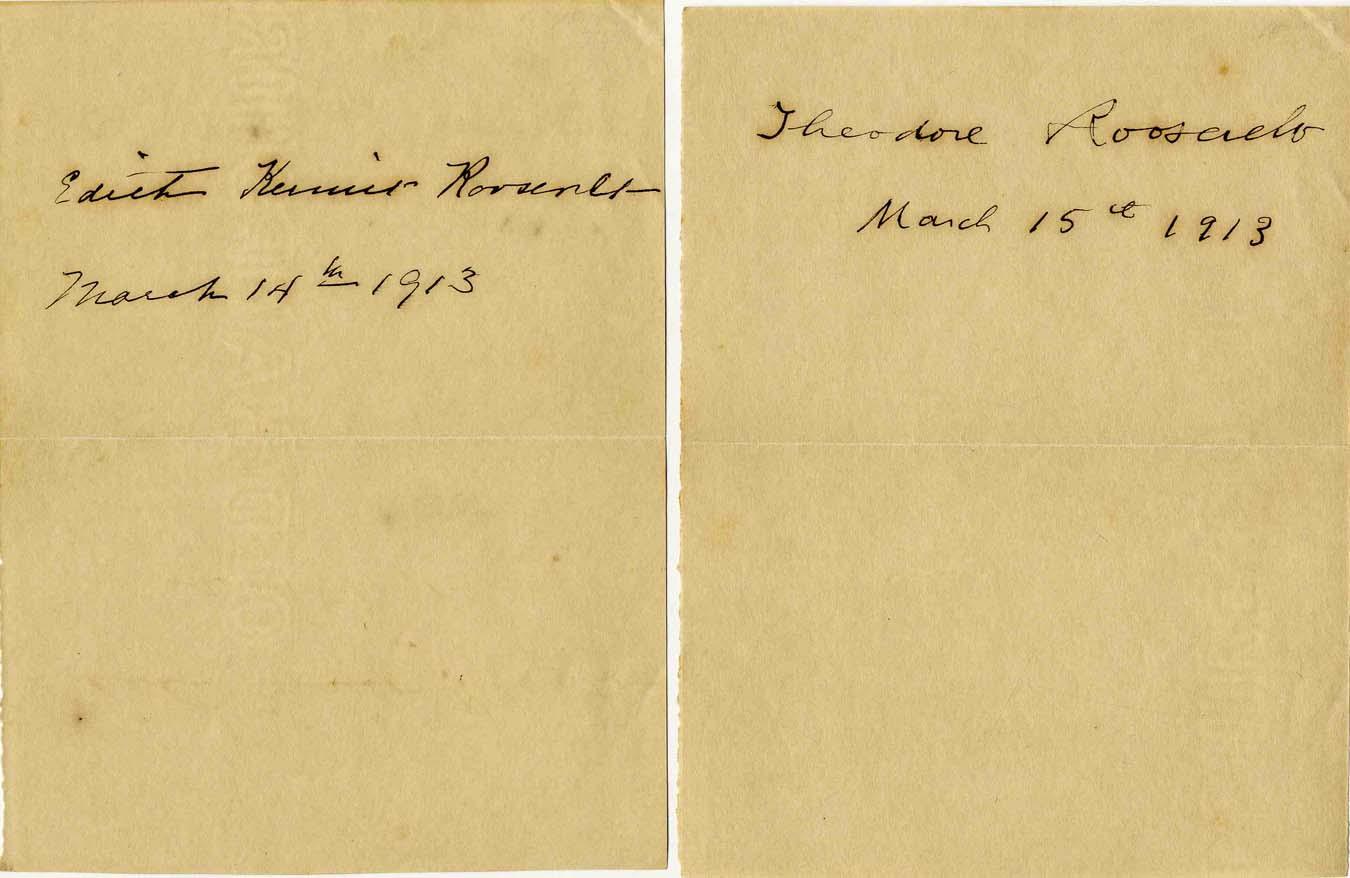 Edith Kermit Roosevelt
March 14th 1913
Theodore Roosevelt
March 15th 1913